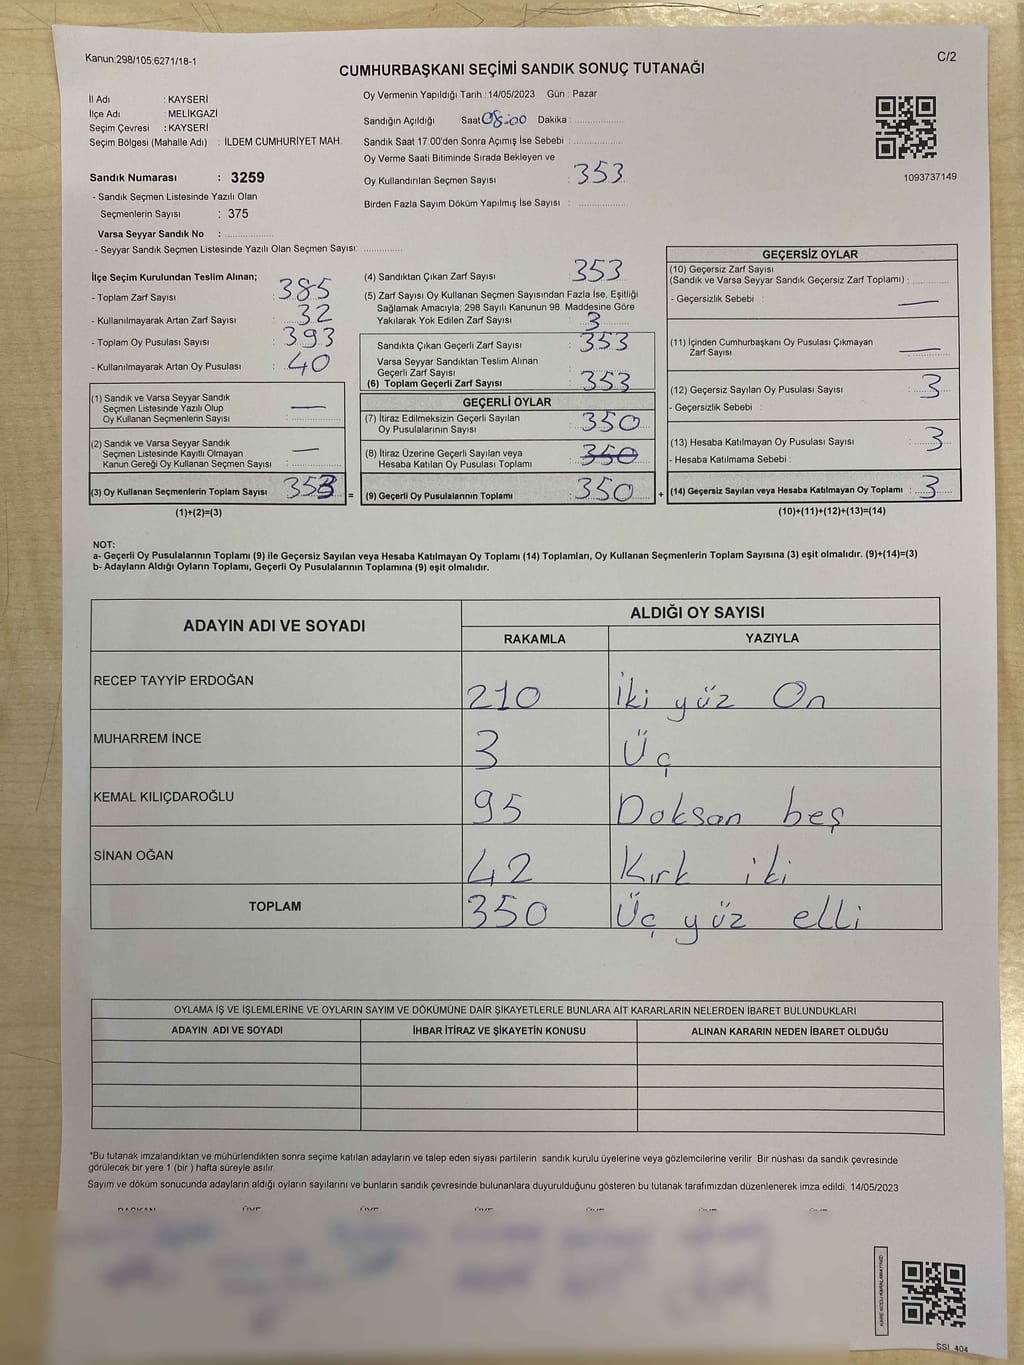 Kanun:298/105;6271/18-1
C/2
CUMHURBAŞKANI SEÇİMİ SANDIK SONUÇ TUTANAĞI
İl Adı : KAYSERİ
İlçe Adı : MELİKGAZİ
Seçim Çevresi : KAYSERİ
Seçim Bölgesi (Mahalle Adı) : İLDEM CUMHURİYET MAH.
Sandık Numarası : 3259
- Sandık Seçmen Listesinde Yazılı Olan
Seçmenlerin Sayısı : 375
Varsa Seyyar Sandık No :
- Seyyar Sandık Seçmen Listesinde Yazılı Olan Seçmen Sayısı:
Oy Vermenin Yapıldığı Tarih :14/05/2023 Gün : Pazar
Sandığın Açıldığı Saat 08:00 Dakika :
Sandık Saat 17:00'den Sonra Açımış İse Sebebi :
Oy Verme Saati Bitiminde Sırada Bekleyen ve
Oy Kullandırılan Seçmen Sayısı : 353
Birden Fazla Sayım Döküm Yapılmış İse Sayısı :
1093737149
İlçe Seçim Kurulundan Teslim Alınan;
- Toplam Zarf Sayısı : 385
- Kullanılmayarak Artan Zarf Sayısı : 32
- Toplam Oy Pusulası Sayısı : 393
- Kullanılmayarak Artan Oy Pusulası : 40
(1) Sandık ve Varsa Seyyar Sandık
Seçmen Listesinde Yazılı Olup
Oy Kullanan Seçmenlerin Sayısı : —
(2) Sandık ve Varsa Seyyar Sandık
Seçmen Listesinde Kayıtlı Olmayan
Kanun Gereği Oy Kullanan Seçmen Sayısı : —
(3) Oy Kullanan Seçmenlerin Toplam Sayısı : 353 =
(1)+(2)=(3)
(4) Sandıktan Çıkan Zarf Sayısı : 353
(5) Zarf Sayısı Oy Kullanan Seçmen Sayısından Fazla İse, Eşitliği
Sağlamak Amacıyla; 298 Sayılı Kanunun 98. Maddesine Göre
Yakılarak Yok Edilen Zarf Sayısı : 3
Sandıkta Çıkan Geçerli Zarf Sayısı : 353
Varsa Seyyar Sandıktan Teslim Alınan
Geçerli Zarf Sayısı :
(6) Toplam Geçerli Zarf Sayısı : 353
GEÇERLİ OYLAR
(7) İtiraz Edilmeksizin Geçerli Sayılan
Oy Pusulalarının Sayısı : 350
(8) İtiraz Üzerine Geçerli Sayılan veya
Hesaba Katılan Oy Pusulası Toplamı : 350
(9) Geçerli Oy Pusulalarının Toplamı : 350 +
GEÇERSİZ OYLAR
(10) Geçersiz Zarf Sayısı
(Sandık ve Varsa Seyyar Sandık Geçersiz Zarf Toplamı) :
- Geçersizlik Sebebi : —
(11) İçinden Cumhurbaşkanı Oy Pusulası Çıkmayan
Zarf Sayısı : —
(12) Geçersiz Sayılan Oy Pusulası Sayısı : 3
- Geçersizlik Sebebi :
(13) Hesaba Katılmayan Oy Pusulası Sayısı : 3
- Hesaba Katılmama Sebebi :
(14) Geçersiz Sayılan veya Hesaba Katılmayan Oy Toplamı : 3
(10)+(11)+(12)+(13)=(14)
NOT:
a- Geçerli Oy Pusulalarının Toplamı (9) ile Geçersiz Sayılan veya Hesaba Katılmayan Oy Toplamı (14) Toplamları, Oy Kullanan Seçmenlerin Toplam Sayısına (3) eşit olmalıdır. (9)+(14)=(3)
b- Adayların Aldığı Oyların Toplamı, Geçerli Oy Pusulalarının Toplamına (9) eşit olmalıdır.
ADAYIN ADI VE SOYADI
ALDIĞI OY SAYISI
RAKAMLA YAZIYLA
RECEP TAYYİP ERDOĞAN 210 İki yüz On
MUHARREM İNCE 3 Üç
KEMAL KILIÇDAROĞLU 95 Doksan beş
SİNAN OĞAN 42 Kırk iki
TOPLAM 350 Üç yüz elli
OYLAMA İŞ VE İŞLEMLERİNE VE OYLARIN SAYIM VE DÖKÜMÜNE DAİR ŞİKAYETLERLE BUNLARA AİT KARARLARIN NELERDEN İBARET BULUNDUKLARI
ADAYIN ADI VE SOYADI İHBAR İTİRAZ VE ŞİKAYETİN KONUSU ALINAN KARARIN NEDEN İBARET OLDUĞU
*Bu tutanak imzalandıktan ve mühürlendikten sonra seçime katılan adayların ve talep eden siyasi partilerin sandık kurulu üyelerine veya gözlemcilerine verilir. Bir nüshası da sandık çevresinde
görülecek bir yere 1 (bir ) hafta süreyle asılır.
Sayım ve döküm sonucunda adayların aldığı oyların sayılarını ve bunların sandık çevresinde bulunanlara duyurulduğunu gösteren bu tutanak tarafımızdan düzenlenerek imza edildi. 14/05/2023
BAŞKAN ÜYE ÜYE ÜYE ÜYE ÜYE ÜYE
SSI_404